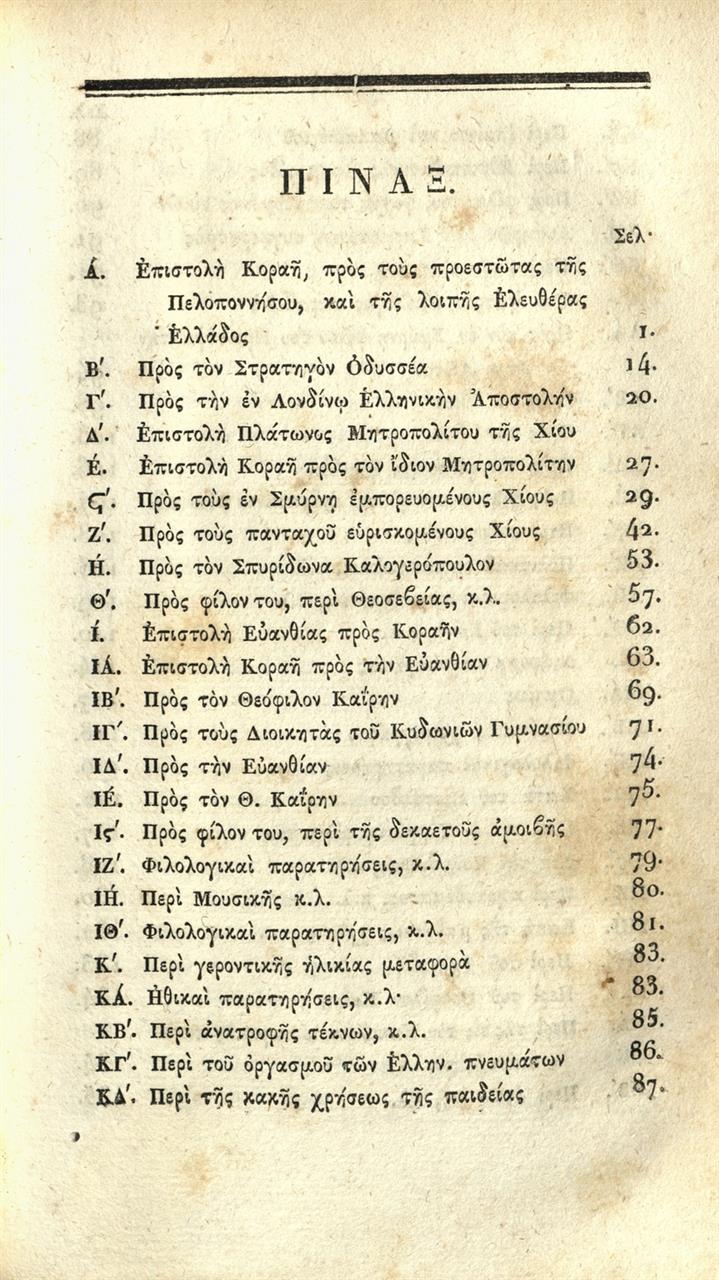 ΠΙΝΑΞ.
Σελ·
Ά. Ἐπιστολὴ Κοραῆ, πρὸς τοὺς προεστῶτας τῆς
Πελοποννήσου, καὶ τῆς λοιπῆς Ἐλευθέρας
Ἑλλάδος 1.
Β′. Πρὸς τὸν Στρατηγὸν Ὀδυσσέα 14.
Γ′. Πρὸς τὴν ἐν Λονδίνῳ Ἑλληνικὴν Ἀποστολήν 20.
Δ′. Ἐπιστολὴ Πλάτωνος Μητροπολίτου τῆς Χίου
Έ. Ἐπιστολὴ Κοραῆ πρὸς τὸν ἴδιον Μητροπολίτην 27.
Ϛ′. Πρὸς τοὺς ἐν Σμύρνῃ ἐμπορευομένους Χίους 29.
Ζ′. Πρὸς τοὺς πανταχοῦ εὑρισκομένους Χίους 42.
Ή. Πρὸς τὸν Σπυρίδωνα Καλογερόπουλον 53.
Θ′. Πρὸς φίλον του, περὶ Θεοσεϐείας, κ.λ. 57.
Ί. Ἐπιστολὴ Εὐανθίας πρὸς Κοραῆν 62.
ΙΆ. Ἐπιστολὴ Κοραῆ πρὸς τὴν Εὐανθίαν 63.
ΙΒ′. Πρὸς τὸν Θεόφιλον Καΐρην 69.
ΙΓ′. Πρὸς τοὺς Διοικητὰς τοῦ Κυδωνιῶν Γυμνασίου 71.
ΙΔ′. Πρὸς τὴν Εὐανθίαν 74.
ΙΈ. Πρὸς τὸν Θ. Καΐρην 75.
Ιϛ′. Πρὸς φίλον του, περὶ τῆς δεκαετοῦς ἀμοιϐῆς 77.
ΙΖ′. Φιλολογικαὶ παρατηρήσεις, κ.λ. 79.
ΙΉ. Περὶ Μουσικῆς κ.λ. 80.
ΙΘ′. Φιλολογικαὶ παρατηρήσεις, κ.λ. 81.
Κ′. Περὶ γεροντικῆς ἡλικίας μεταφορὰ 83.
ΚΆ. Ἠθικαὶ παρατηρήσεις, κ.λ· 83.
ΚΒ′. Περὶ ἀνατροφῆς τέκνων, κ.λ. 85.
ΚΓ′. Περὶ τοῦ ὀργασμοῦ τῶν Ἑλλην. πνευμάτων 86.
ΚΔ′. Περὶ τῆς κακῆς χρήσεως τῆς παιδείας 87.